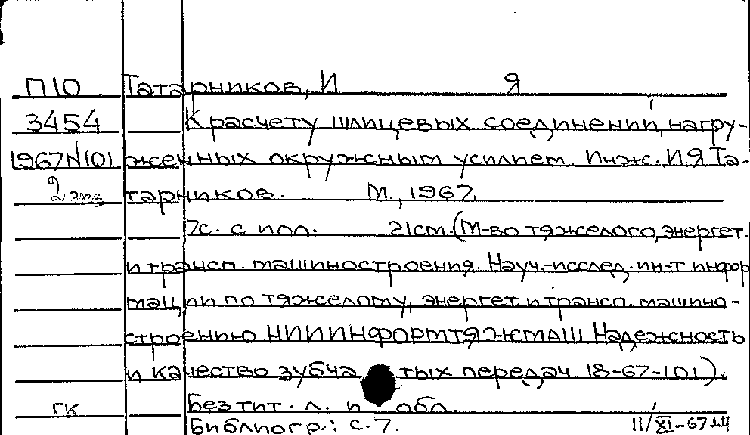 П10 Татарников, И Я
3454 К расчету шлицевых соединений, нагру-
1967N101 женных окружным усилием. Инж. И.Я. Та-
2 экз тарников. М., 1967.
7с. с илл. 21см. (М-во тяжелого, энергет.
и трансп. машиностроения. Науч.-исслед. ин-т инфор
мации по тяжелому, энергет. и трансп. машино-
строению НИИИНФОРМТЯЖМАШ Надежность
и качество зубчатых передач 18-67-101).
ГК Без тит. л. и обл.
Библиогр.: с. 7. 11/XI-67